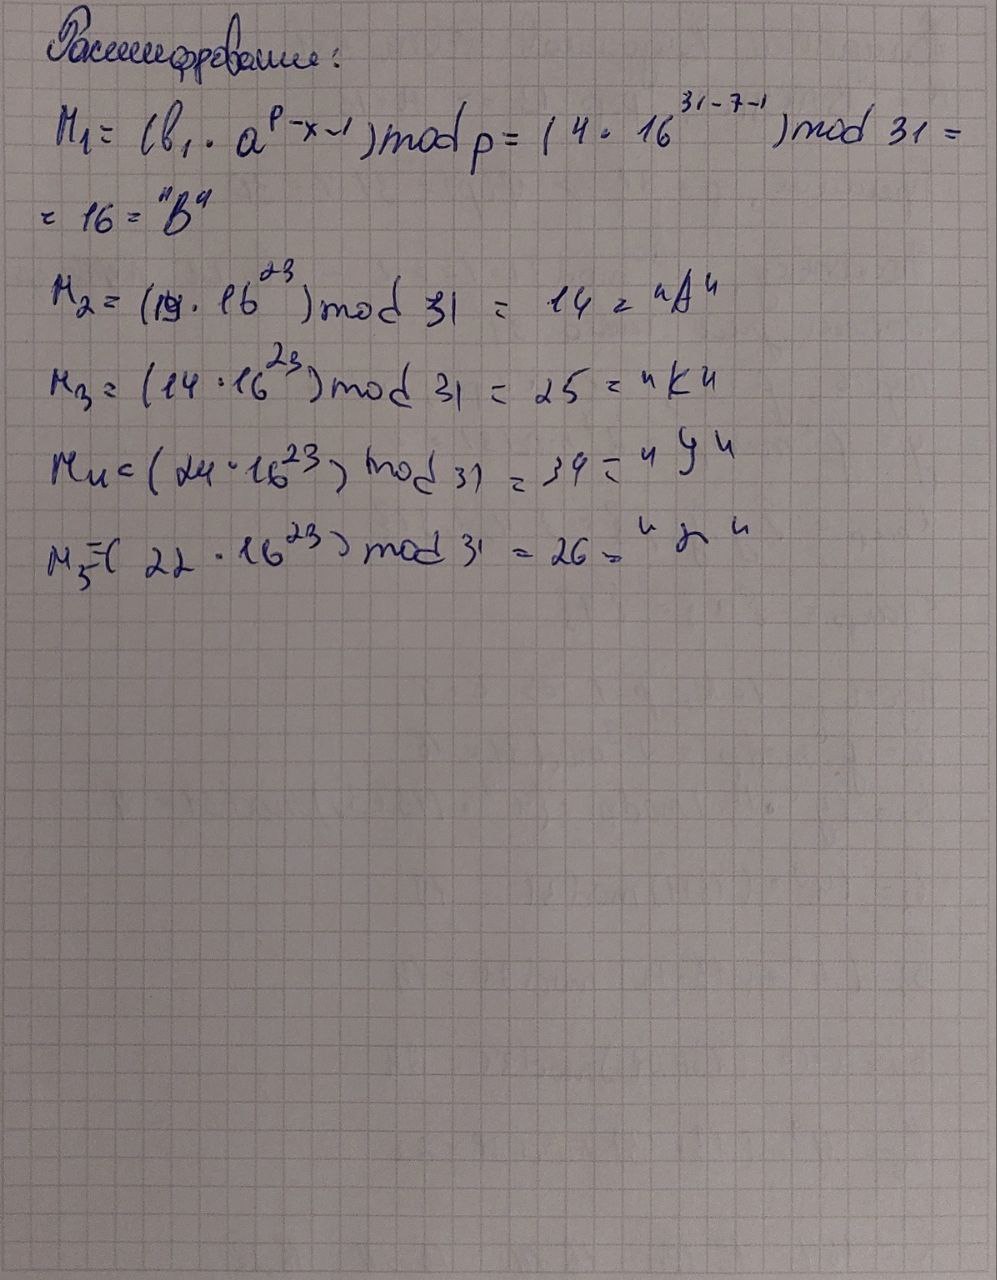 Расшифрование:
M₁ = (b₁ · a^(p-x-1)) mod p = (4 · 16^(31-7-1)) mod 31 =
= 16 = "В"
M₂ = (19 · 16^23) mod 31 = 14 = "А"
M₃ = (14 · 16^23) mod 31 = 25 = "К"
M₄ = (24 · 16^23) mod 31 = 34 = "У"
M₅ = (22 · 16^23) mod 31 = 26 = "Л"